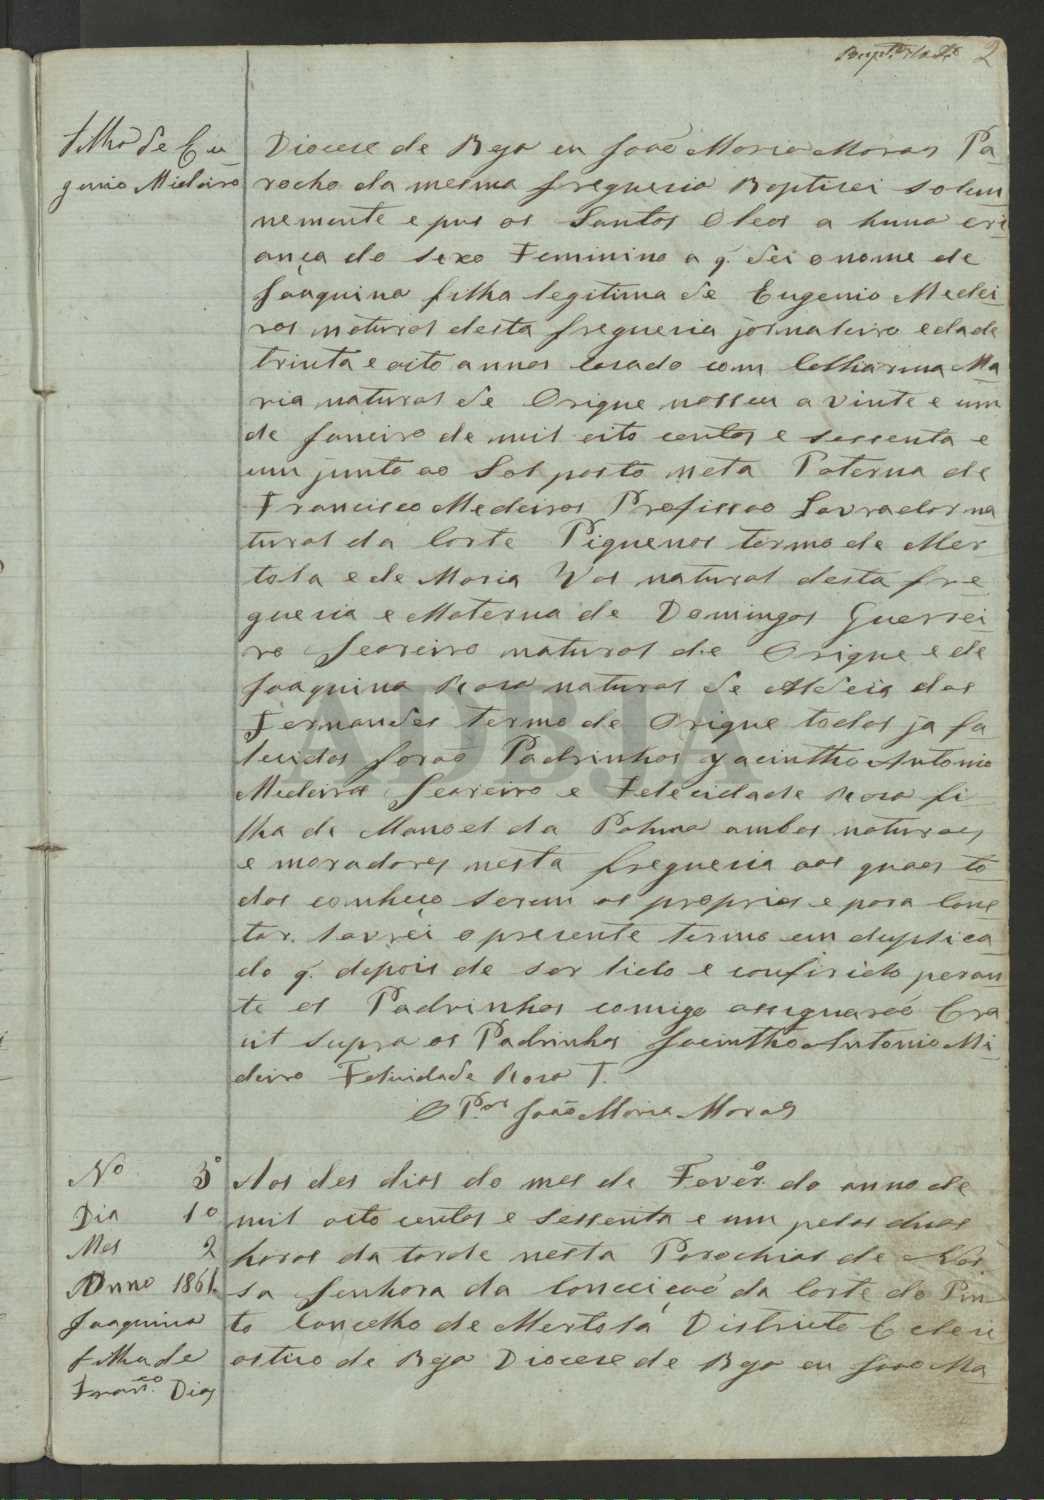 2
filha de Eu
genio Mideiro
Diocese de Beja eu João Maria Moras Pa
rocho da mesma freguesia Baptisei solem
nemente e pus os Santos Oleos a huma cri
ança do sexo Feminino a q. dei o nome de
Joaquina filha legitima de Eugenio Medei
ros natural desta freguesia jornaleiro edade
trinta e oito annos casado com Catharina Ma
ria natural de Orique nasseu a vinte e um
de Janeiro de mil oito centos e sessenta e
um junto ao Sol posto neta Paterna de
Francisco Medeiros Profissao Lavrador na
tural da Corte Piquenos termo de Mer
tola e de Maria Vas natural desta fre
guesia e Materna de Domingos Guerrei
ro Seareiro natural de Orique e de
Joaquina Rosa natural de Aldeia dos
Fernandes termo de Orique todos ja fa
lecidos forao Padrinhos Jacintho Antonio
Medeiros Seareiro e Felecidade Rosa fi
lha de Manoel da Palma ambos naturaes
e moradores nesta freguesia aos quaes to
dos conheço serem os proprios e para cons
tar. lavrei o presente termo em duplica
do q. depois de ser lido e confirido peran
te os Padrinhos comigo assignarão Era
ut supra os Padrinhos Jacintho Antonio Mi
deiro Felicidade Rosa T.
O P.or João Maria Moras
No 3º
Dia 10
Mes 2
Anno 1861.
Joaquina
filha de
Fran.co Dias
Aos des dias do mes de Fever.o do anno de
mil oito centos e sessenta e um pelas duas
horas da tarde nesta Parochial de Nos.
sa Senhora da Conceição da Corte do Pin
to Concelho de Mertola Districto Eclesi
astico de Beja Diocese de Beja eu João Ma
ADBJA